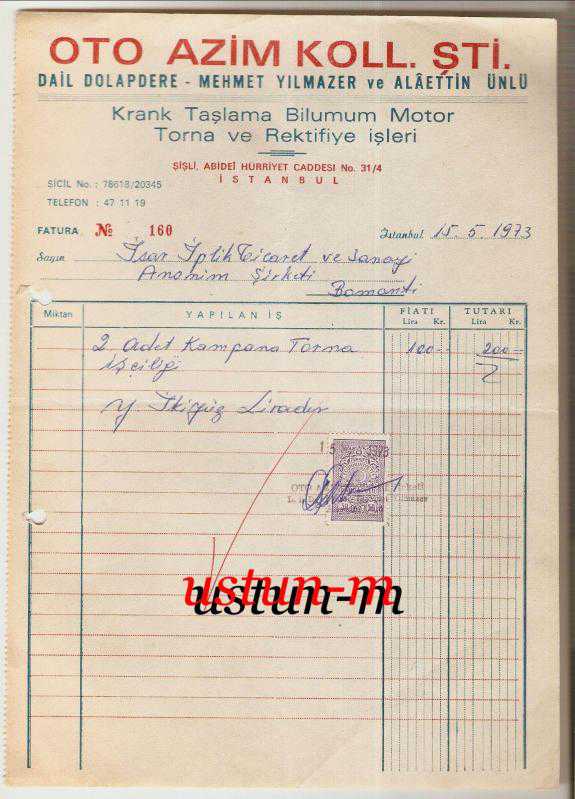 OTO AZİM KOLL. ŞTİ.
DAİL DOLAPDERE - MEHMET YILMAZER ve ALÂETTİN ÜNLÜ
Krank Taşlama Bilumum Motor
Torna ve Rektifiye işleri
ŞİŞLİ, ABİDEİ HÜRRİYET CADDESİ No. 31/4
İSTANBUL
SİCİL No. : 78618/20345
TELEFON : 47 11 19
FATURA № 160
İstanbul 15.5.1973
Sayın İsar İplik Ticaret ve Sanayi
Anonim Şirketi
Bomonti
Miktarı YAPILAN İŞ FİATI TUTARI
Lira Kr. Lira Kr.
2 Adet Kampana Torna 100-- 200=
işçiliği
Y. İkiyüz Liradır
15 1973
OTO
ustun-m